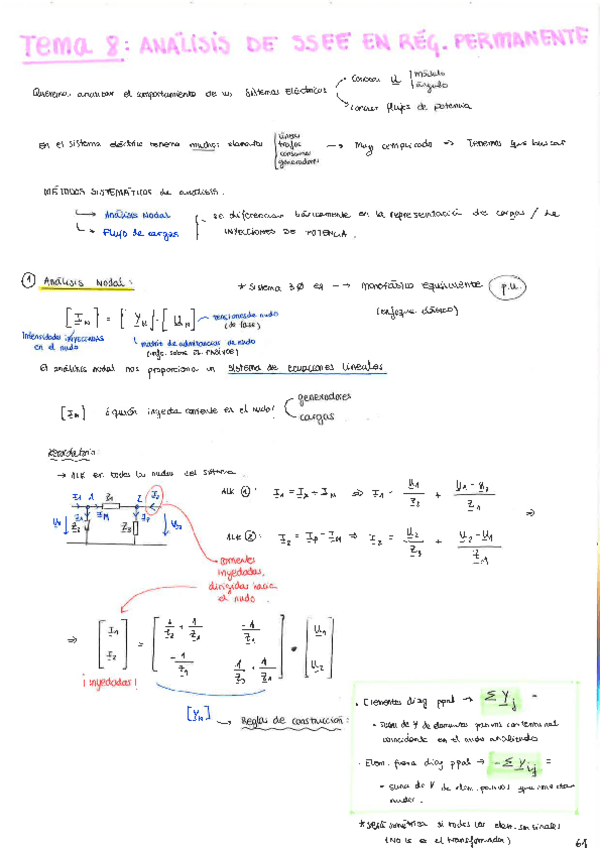 Tema 8: ANÁLISIS DE SSEE EN RÉG. PERMANENTE
Queremos analizar el comportamiento de un sistema eléctrico
Conocer U módulo
árgulo
conocer flujos de potencia
En el sistema eléctrico tenemos muchos elementos
líneas
trafos
consumos
generadores
→ Muy complicado ⇒ Tenemos que buscar
MÉTODOS SISTEMÁTICOS de análisis.
→ Análisis Nodal
→ Flujo de cargas
se diferencian básicamente en la representación de cargas / de
INYECCIONES DE POTENCIA.
① Análisis Nodal:
* Sistema 3Ø eq --→ monofásico equivalente p.u.
(enfoque clásico)
[I_N] = [Y_N]·[U_N]
tensiones de nudo
(de fase)
Intensidades inyectadas
en el nudo
matriz de admitancias de nudo
(info. sobre el. pasivos)
El análisis nodal nos proporciona un sistema de ecuaciones lineales
[I_N] ¿quién inyecta corriente en el nudo?
generadores
cargas
Recordatorio:
→ ALK en todos los nudos del sistema
ALK ①: I1 = I2 + IM ⇒ I1 = U1/Z2 + (U1 - U2)/Z1
⇒
ALK ②: I2 = IP - IM ⇒ I2 = U2/Z3 + (U2 - U1)/Z1
corrientes
inyectadas,
dirigidas hacia
el nudo
⇒ [I1 I2] = [1/Z2 + 1/Z1 -1/Z1 -1/Z1 1/Z3 + 1/Z1] · [U1 U2]
¡inyectadas!
[Y_N] → Reglas de construcción:
· Elementos diag ppal → ΣYj =
· suma de Y de elementos pasivos con terminal
coincidente en el nudo analizado
· Elem. fuera diag ppal → -ΣYij =
· suma de Y de elem. pasivos que conectan
nudos.
* será simétrica si todos los elem. son lineales
(No lo es el transformador)
61